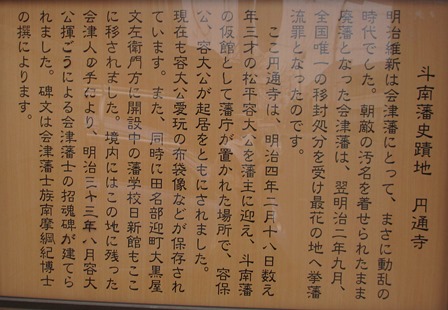 斗南藩史蹟地　円通寺
明治維新は会津藩にとって、まさに動乱の
時代でした。朝敵の汚名を着せられたまま
廃藩となった会津藩は、翌明治二年九月、
全国唯一の移封処分を受け最花の地へ挙藩
流罪となったのです。
ここ円通寺は、明治四年二月十八日数え
年三才の松平容大公を藩主に迎え、斗南藩
の仮館として藩庁が置かれた場所で、容保
公、容大公が起居をともにされました。
現在も容大公愛玩の布袋像などが保存され
ています。また、同時に田名部迎町大黒屋
文左衛門方に開設中の藩学校日新館もここ
に移されました。境内にはこの地に残った
会津人の手により、明治三十三年八月容大
公揮ごうによる会津藩士の招魂碑が建てら
れました。碑文は会津藩士族南摩綱紀博士
の撰によります。